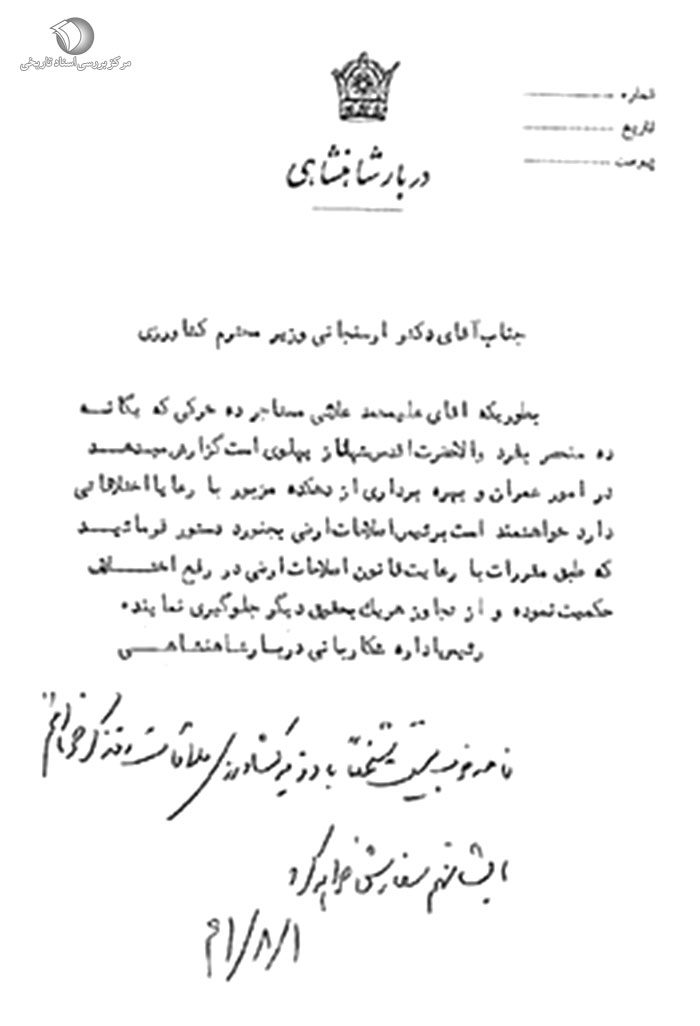 مرکز بررسی اسناد تاریخی
شماره
تاریخ
پیوست
دربار شاهنشاهی
جناب آقای دکتر ارسنجانی وزیر محترم کشاورزی
بطوریکه آقای علیمحمد مستاجر ده خرکی که یگانه
ده منحصر بفرد والاحضرت اقدس شهناز پهلوی است گزارش میدهد
در امور عمران و بهره برداری از دهکده مزبور با رعایا اختلافاتی
دارد خواهشمند است برئیس اصلاحات ارضی بجنورد دستور فرمائید
که طبق مقررات با رعایت قانون اصلاحات ارضی در رفع اختلاف
حکمیت نموده و از تجاوز هریک بحقوق دیگر جلوگیری نمایند.
رئیس اداره شکاربانی دربار شاهنشاهی
با وزیر کشاورزی ملاقات
سفارش خواهم کرد
۴۱/۸/۱